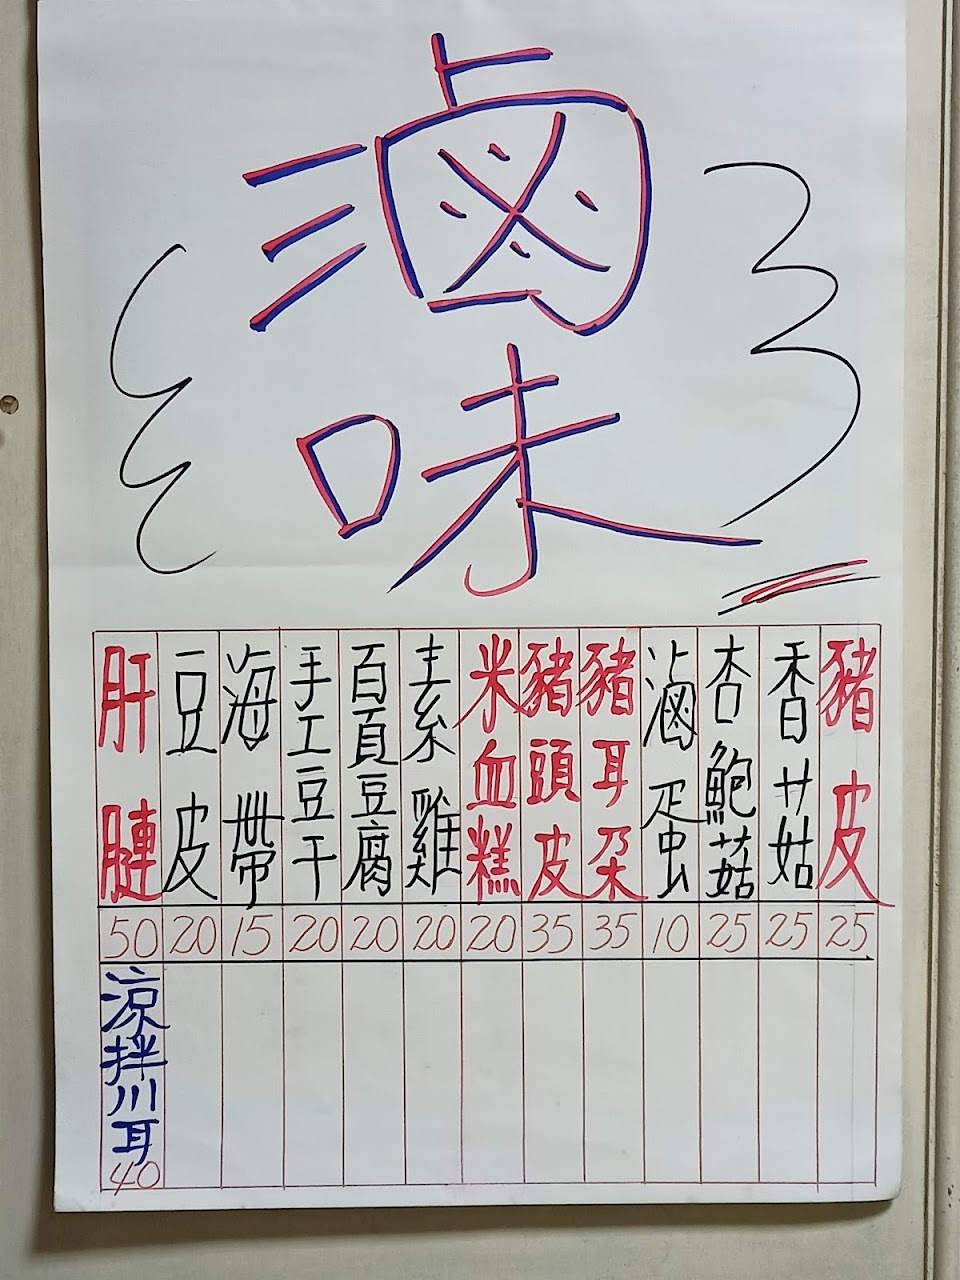 滷
味
豬皮 25
香菇 25
杏鮑菇 25
滷蛋 10
豬耳朵 35
豬頭皮 35
米血糕 20
素雞 20
百頁豆腐 20
手工豆干 20
海帶 15
豆皮 20
肝𦟪 50
涼拌川耳 40